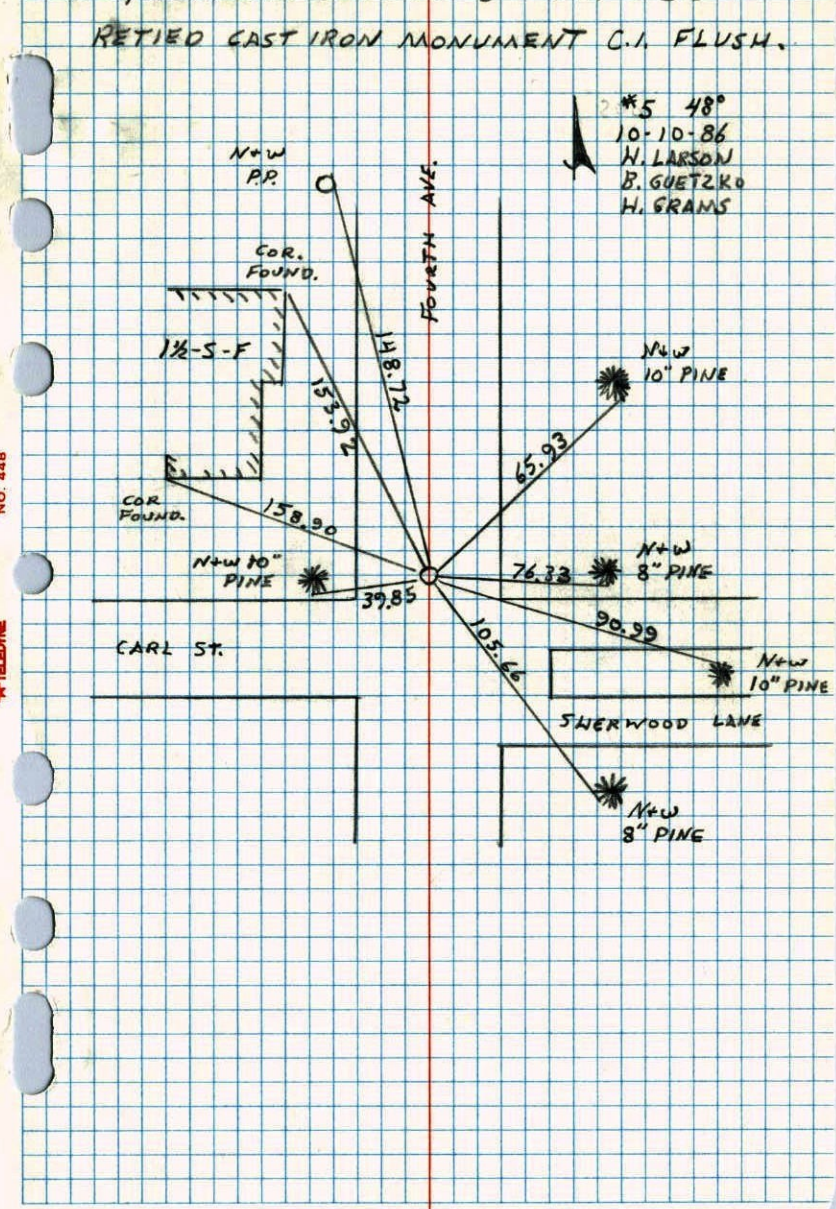 RETIED CAST IRON MONUMENT C.I. FLUSH.
#5 48°
10-10-86
W. LARSON
B. GUETZKO
H. GRAMS
N+W
P.P.
FOURTH AVE.
COR.
FOUND.
1½-S-F
148.72
153.92
N+W
10" PINE
65.93
COR
FOUND.
158.90
N+W 10"
PINE
39.85
76.33
N+W
8" PINE
90.99
105.66
CARL ST.
N+W
10" PINE
SHERWOOD LANE
N+W
8" PINE
NO. 448